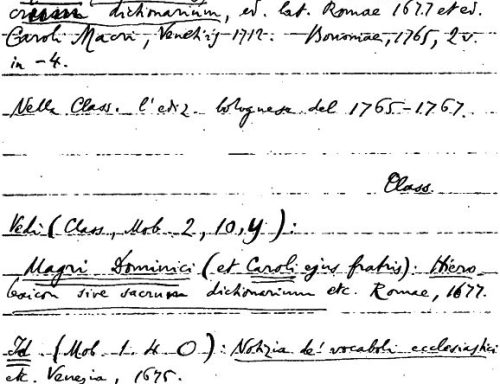 dictionarium, ed. lat. Romae 1677 et ed.
Caroli Macri, Venetijs 1712. Bononiae, 1765, 2 v.
in -4.
Nella Class. l'ediz. bolognese del 1765-1767.
Class.
Vedi (Class, Mob. 2, 10, Y):
Magri Dominici (et Caroli ejus fratris): Hiero
lexicon sive sacrum dictionarium etc. Romae, 1677.
Id (Mob. 1. 4 O): Notizia de' vocaboli ecclesiastici
etc. Venezia, 1675.